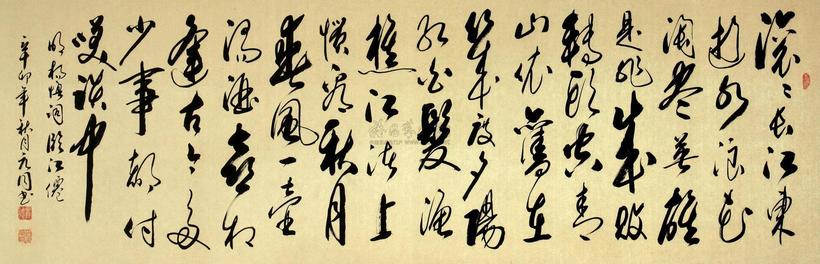 滚〻长江東
逝水浪花
淘尽英雄
是非成败
轉頭空青
山依舊在
幾度夕陽
红白髮渔
樵江渚上
惯看秋月
春風一壺
濁酒喜相
逢古今多
少事都付
笑談中
明杨慎词临江僊
辛卯年秋月元同书